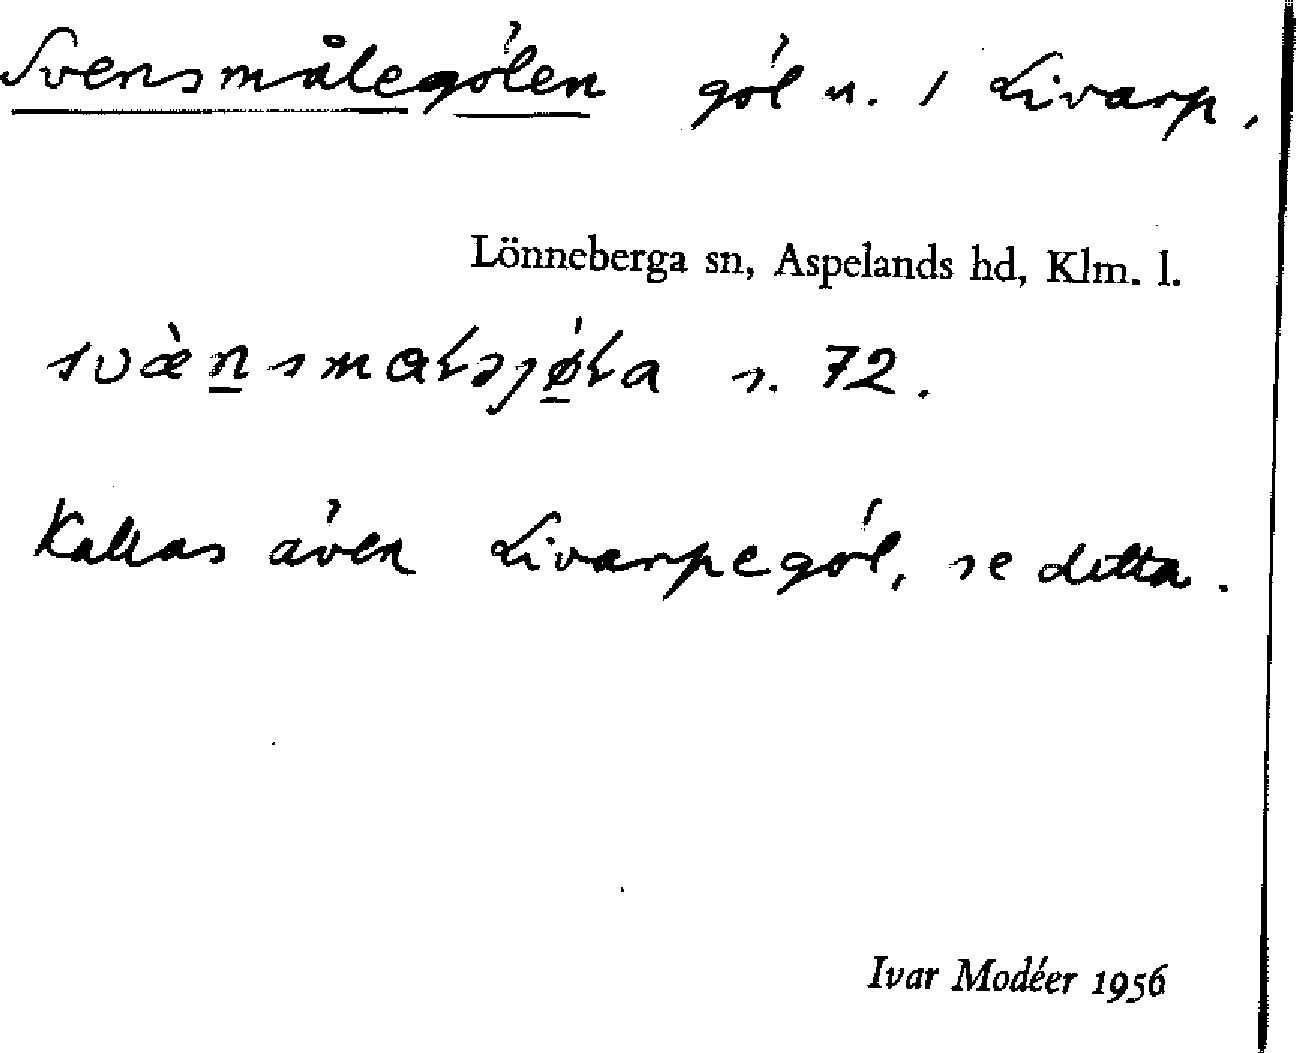 Svensmålegölen göl n. / Livarp,
Lönneberga sn, Aspelands hd, Klm. l.
s. 72.
Kallas även Livarpegöl, se detta.
Ivar Modéer 1956